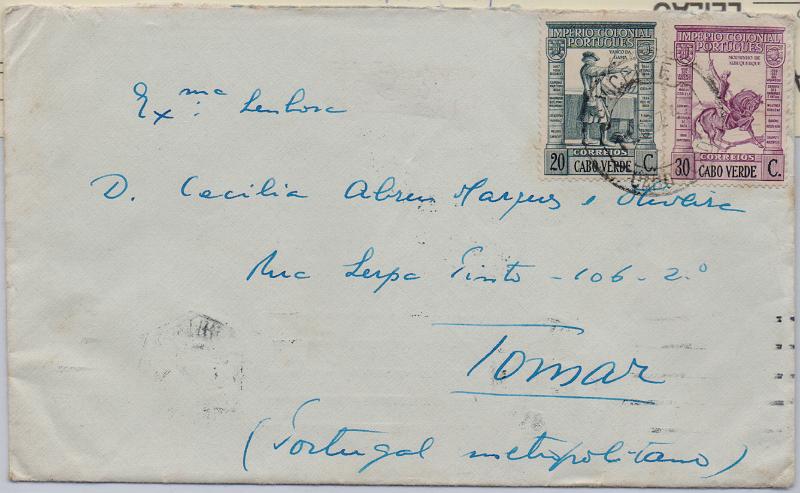 IMPÉRIO COLONIAL PORTUGUÊS
VASCO DA GAMA
CORREIOS
20 CABO VERDE C.
IMPÉRIO COLONIAL PORTUGUÊS
MOUSINHO DE ALBUQUERQUE
CORREIOS
30 CABO VERDE C.
Ex.ma Senhora
D. Cecilia Abreu Marques e Oliveira
Rua Serpa Pinto - 106 - 2.º
Tomar
(Portugal metropolitano)